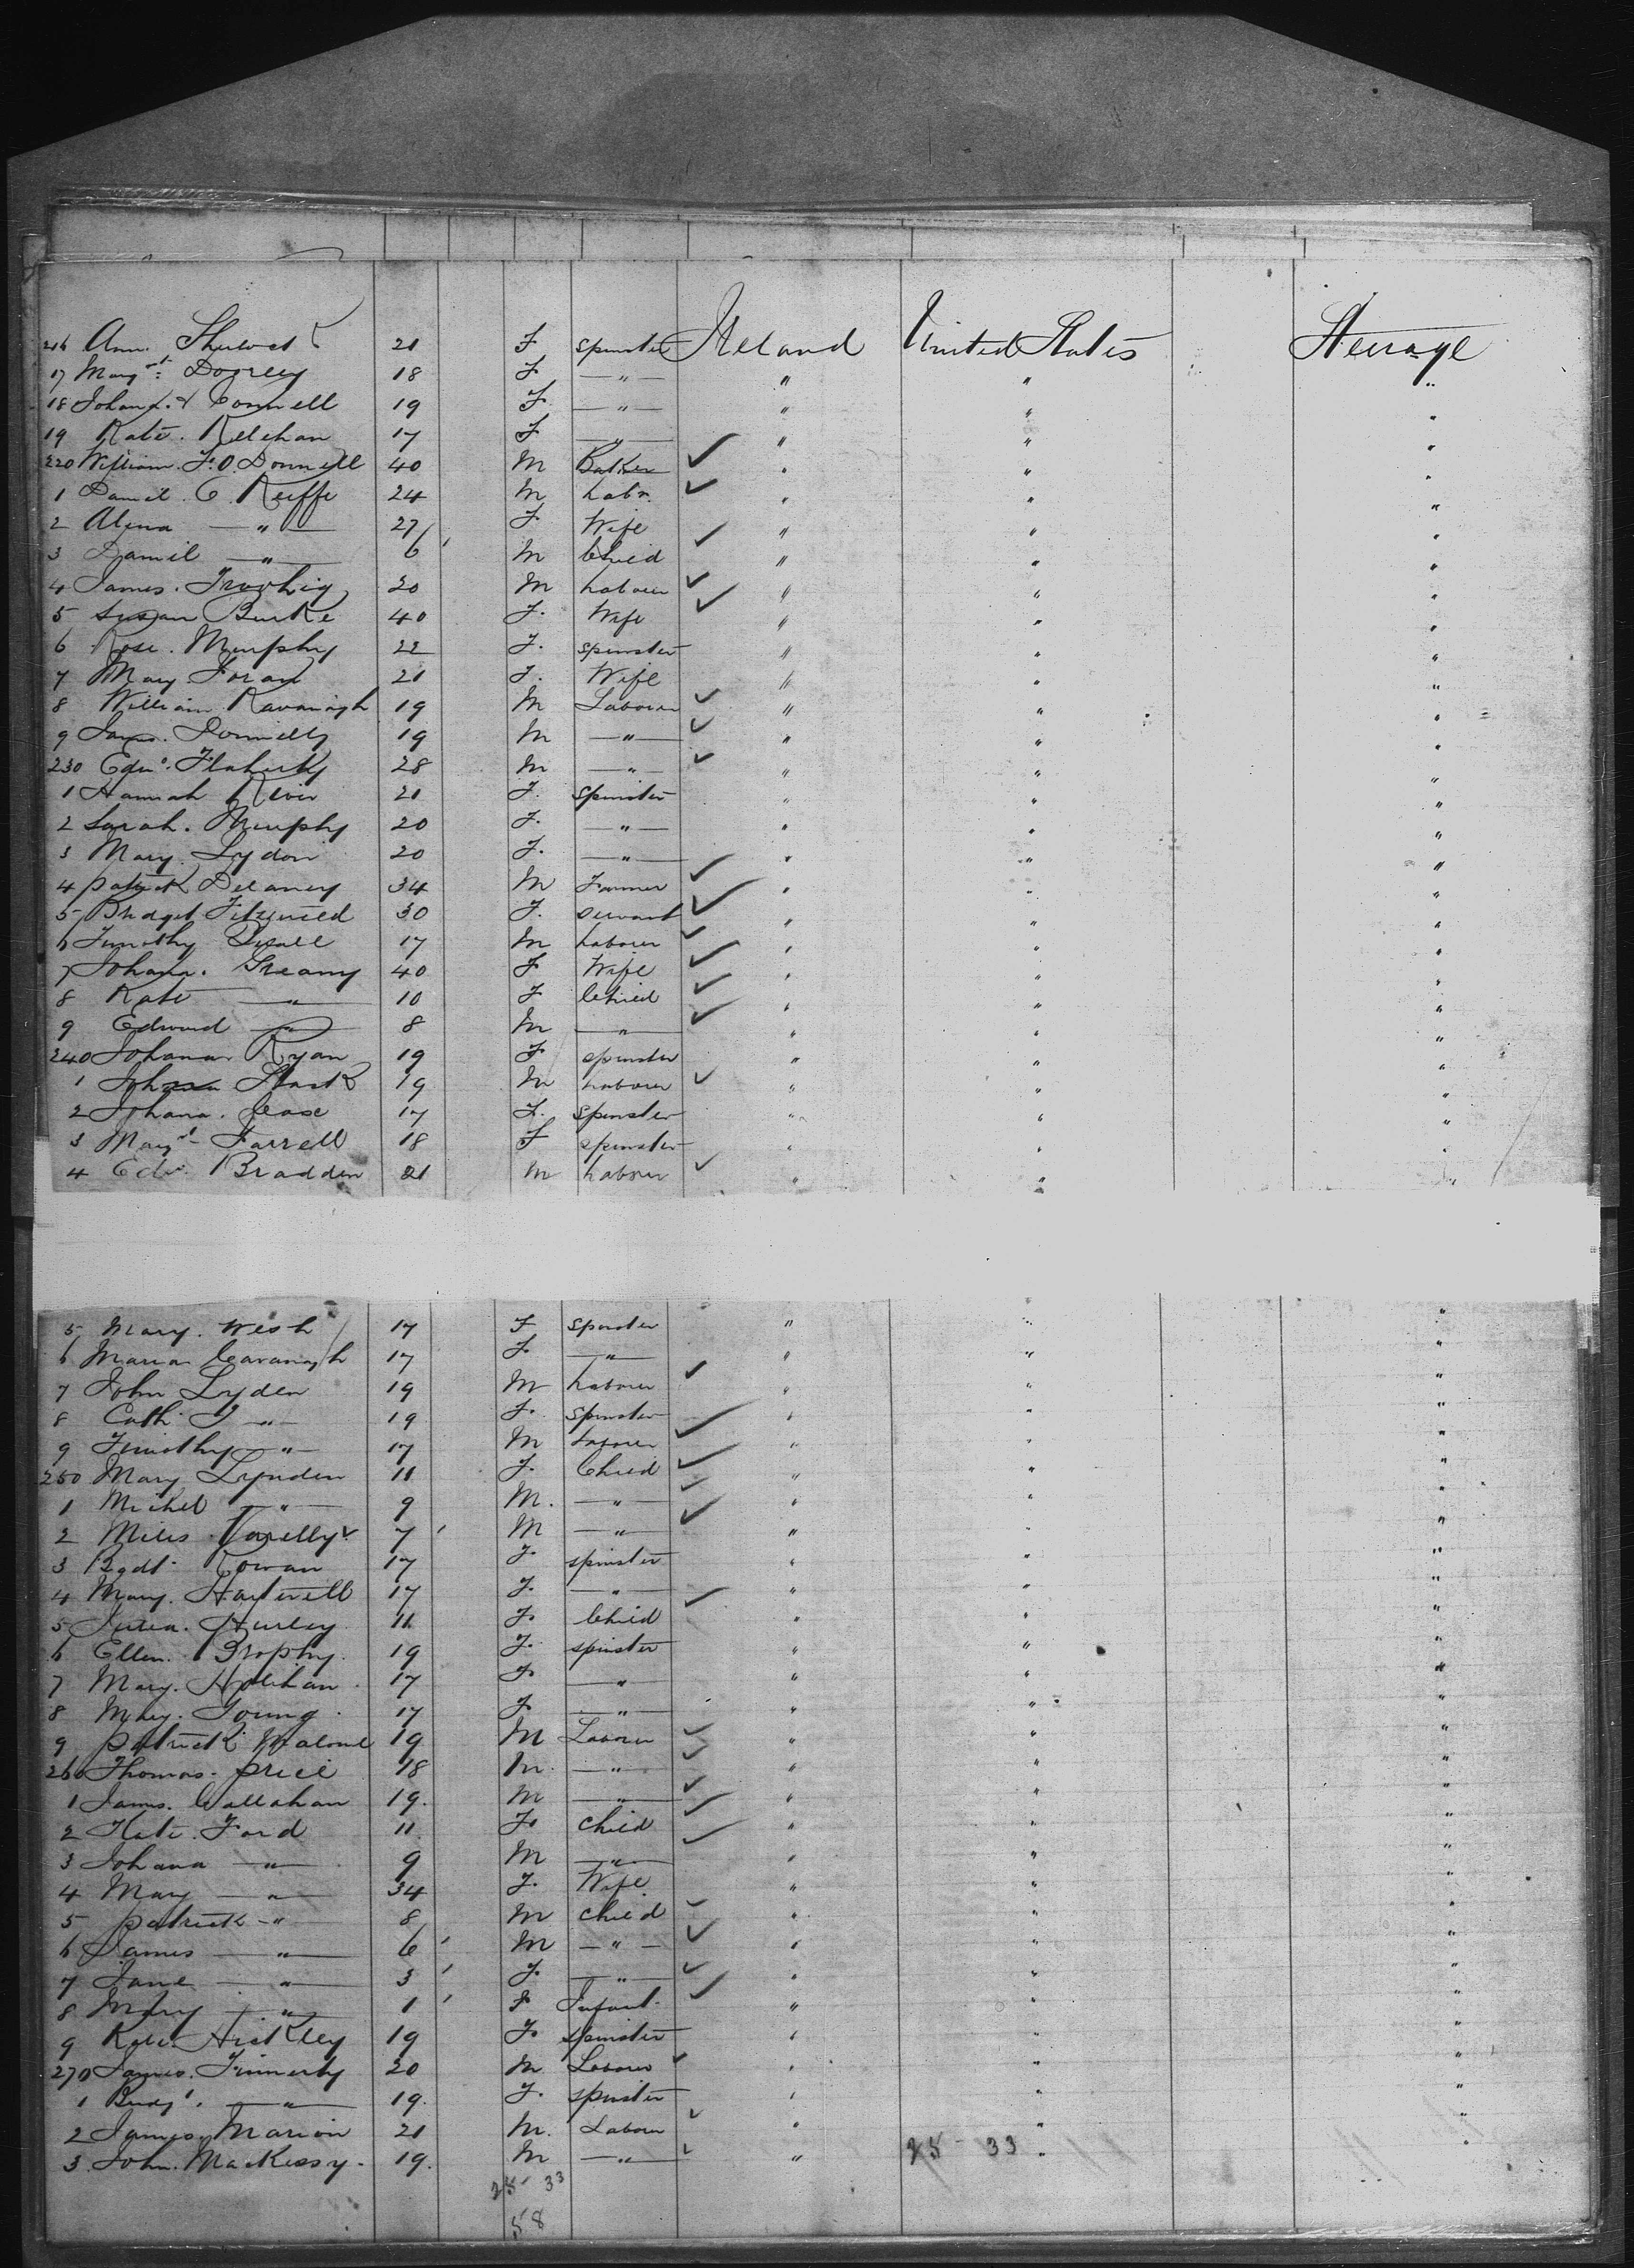 216 Ann. 21 F spinster Ireland United States Steerage
17 Margt. Doorley 18 F — " — " " "
18 Johana. Connell 19 F. — " — " " "
19 Kate. Kelehan 17 F — " — " " "
220 William. F. O. Donnell 40 M Baker ✓ " " "
1 Daniel. O. Keiffe 24 M Labr. ✓ " " "
2 Alena — " — 27 F. Wife " " "
3 Daniel — " — 6 ' M Child ✓ " " "
4 James. 20 M Laborer ✓ " " "
5 Susan Burke 40 F. Wife ✓ " " "
6 Rose. Murphy 22 F. spinster " " "
7 Mary Foran 21 F. Wife " " "
8 William Kavanagh 19 M Laborer ✓ " " "
9 James. Donnelly 19 M — " — ✓ " " "
230 Edwd. Flaherty 28 M — " — ✓ " " "
1 Hannah 21 F. Spinster " " "
2 Sarah. Murphy 20 F. — " — " " "
3 Mary. Lydon 20 F. — " — " " "
4 Patrick Delaney 34 M Farmer ✓ " " "
5 Bridget 30 F. Servant ✓ " " "
6 Timothy 17 M Laborer ✓ " " "
7 Johana. Greany 40 F Wife ✓ " " "
8 Kate — " — 10 F Child ✓ " " "
9 Edward — " — 8 M — " — ✓ " " "
240 Johana Ryan 19 F spinster " " "
1 John Stack 19 M Laborer ✓ " " "
2 Johana. Case 17 F. Spinster " " "
3 Margt Farrell 18 F spinster " " "
4 Edw. Bradden 21 M Laborer ✓ " " "
5 Mary. Wesh 17 F Spinster " " "
6 Maria Cavanagh 17 F. — " — " " "
7 John Lyden 19 M Laborer ✓ " " "
8 Cath. — " — 19 F. Spinster " " "
9 Timothy — " — 17 M Laborer ✓ " " "
250 Mary Lynden 11 F. Child ✓ " " "
1 Michel — " — 9 M. — " — ✓ " " "
2 Miles 7 ' M — " — ✓ " " "
3 Bgdt. Rowan 17 F spinster " " "
4 Mary. Hartwell 17 F. — " — " " "
5 Julia. Hurley 11 F. Child ✓ " " "
6 Ellen. Brophy. 19 F. spinster " " "
7 Mary. Holihan 17 F. — " — " " "
8 Mary. Young. 17 F. — " — " " "
9 Patrick Malone 19 M Laborer ✓ " " "
260 Thomas. Price 18 M. — " — ✓ " " "
1 James. Callahan 19. M — " — ✓ " " "
2 Kate. Ford 11 F. Child ✓ " " "
3 Johana — " — 9 M — " — ✓ " " "
4 Mary — " — 34 F. Wife " " "
5 Patrick — " 8 M Child ✓ " " "
6 James — " — 6 ' M — " — ✓ " " "
7 Jane — " — 3 ' F. — " — ✓ " " "
8 Mary — " — 1 ' F Infant. ✓ " " "
9 Kate. Hickley 19 F. spinster " " "
270 James. Finnerty 20 M Laborer ✓ " " "
1 Bridgt. — " — 19. F. spinster " " "
2 James. Marion 21 M. Laborer ✓ " " "
3. John. MacKessy. 19. M — " — ✓ " 25 - 33 "
25 - 33
58